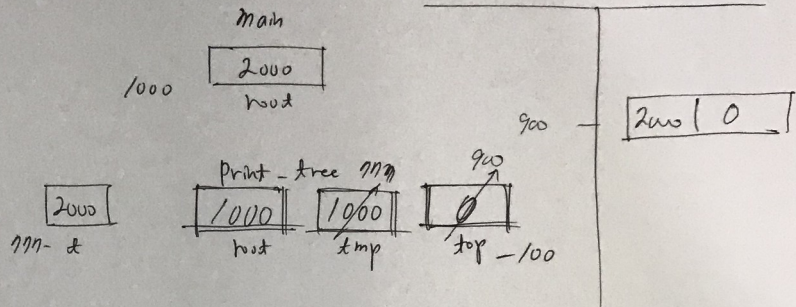 Main
2000
1000
root
900
2000 | 0
print_tree 777
900
2000
1000
1000
0
777- t
root
tmp
top -100